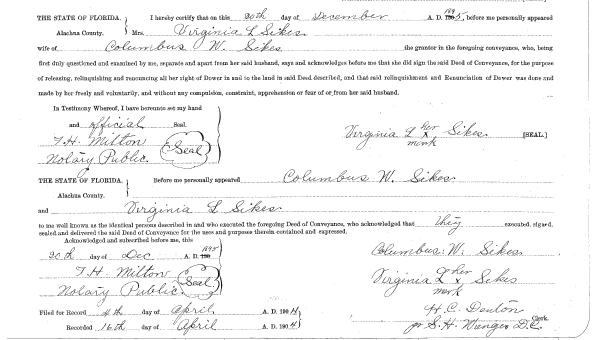 THE STATE OF FLORIDA. I hereby certify that on this 20th day of December A. D. 1895, before me personally appeared
Alachua County. Mrs. Virginia L Sikes
wife of Columbus W. Sikes the grantor in the foregoing conveyance, who, being
first duly questioned and examined by me, separate and apart from her said husband, says and acknowledges before me that she did sign the said Deed of Conveyance, for the purpose
of releasing, relinquishing and renouncing all her right of Dower in and to the land in said Deed described, and that said relinquishment and Renunciation of Dower was done and
made by her freely and voluntarily, and without any compulsion, constraint, apprehension or fear of or from her said husband.
In Testimony Whereof, I have hereunto set my hand
and official Seal.
T. H. Milton
Notary Public. (Seal)
Virginia L her x mark Sikes [SEAL.]
THE STATE OF FLORIDA. Before me personally appeared Columbus W. Sikes
Alachua County.
and Virginia L Sikes
to me well known as the identical persons described in and who executed the foregoing Deed of Conveyance, who acknowledged that they executed, signed,
sealed and delivered the said Deed of Conveyance for the uses and purposes therein contained and expressed.
Acknowledged and subscribed before me, this
20th day of Dec A. D. 1895
T. H. Milton
Notary Public (Seal)
Columbus. W. Sikes
Virginia L her x mark Sikes
Filed for Record 4th day of April A. D. 1904
Recorded 16th day of April A. D. 1904
H. C. Denton Clerk.
pr S. H. Wienges D. C.